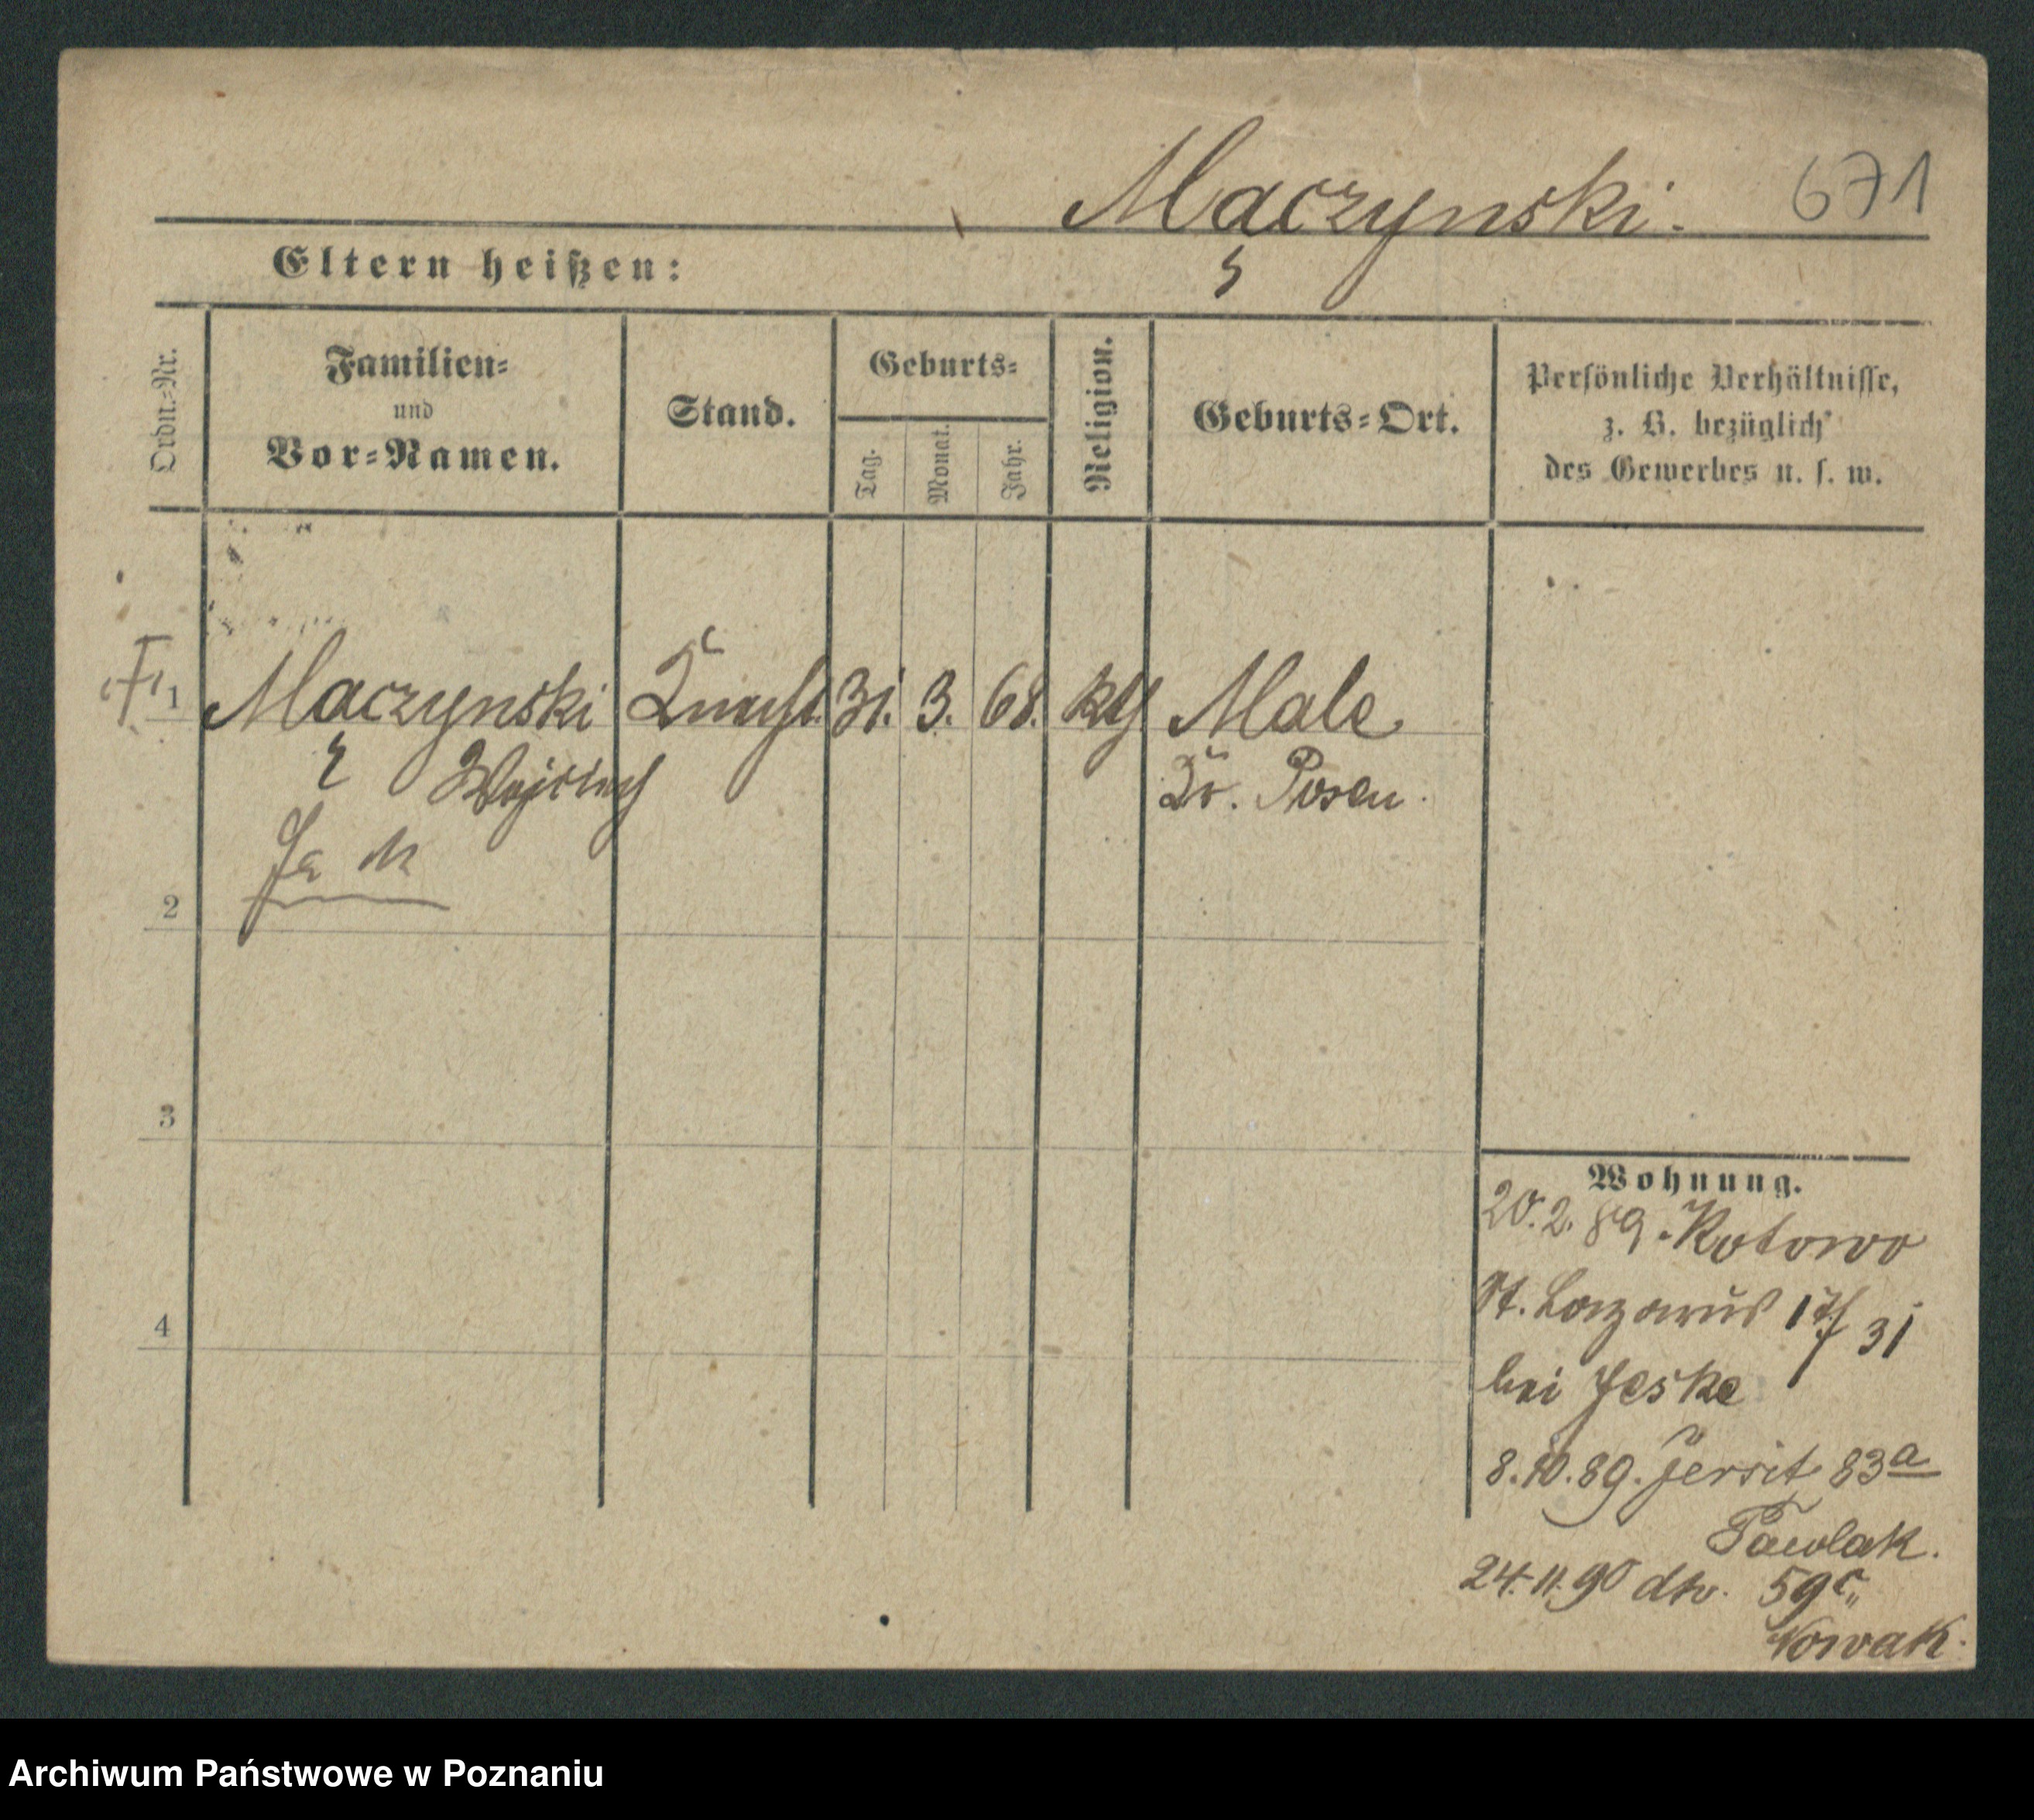 Mączynski.
671
Eltern heißen:
Ordn.-Nr.
Familien-
und
Vor-Namen.
Stand.
Geburts-
Tag.
Monat.
Jahr.
Religion.
Geburts-Ort.
Persönliche Verhältnisse,
z. B. bezüglich
des Gewerbes u. s. w.
1 Mączynski Knecht 31. 3. 68. kth Male
Wojciech Kr. Posen.
2
3
4
Wohnung.
20.2.89. Kotowo
St. Lazarus 31
bei Jeske
8.10.89. Jersit 83a
Pawlak.
24.11.90 59c
Nowak.
Archiwum Państwowe w Poznaniu